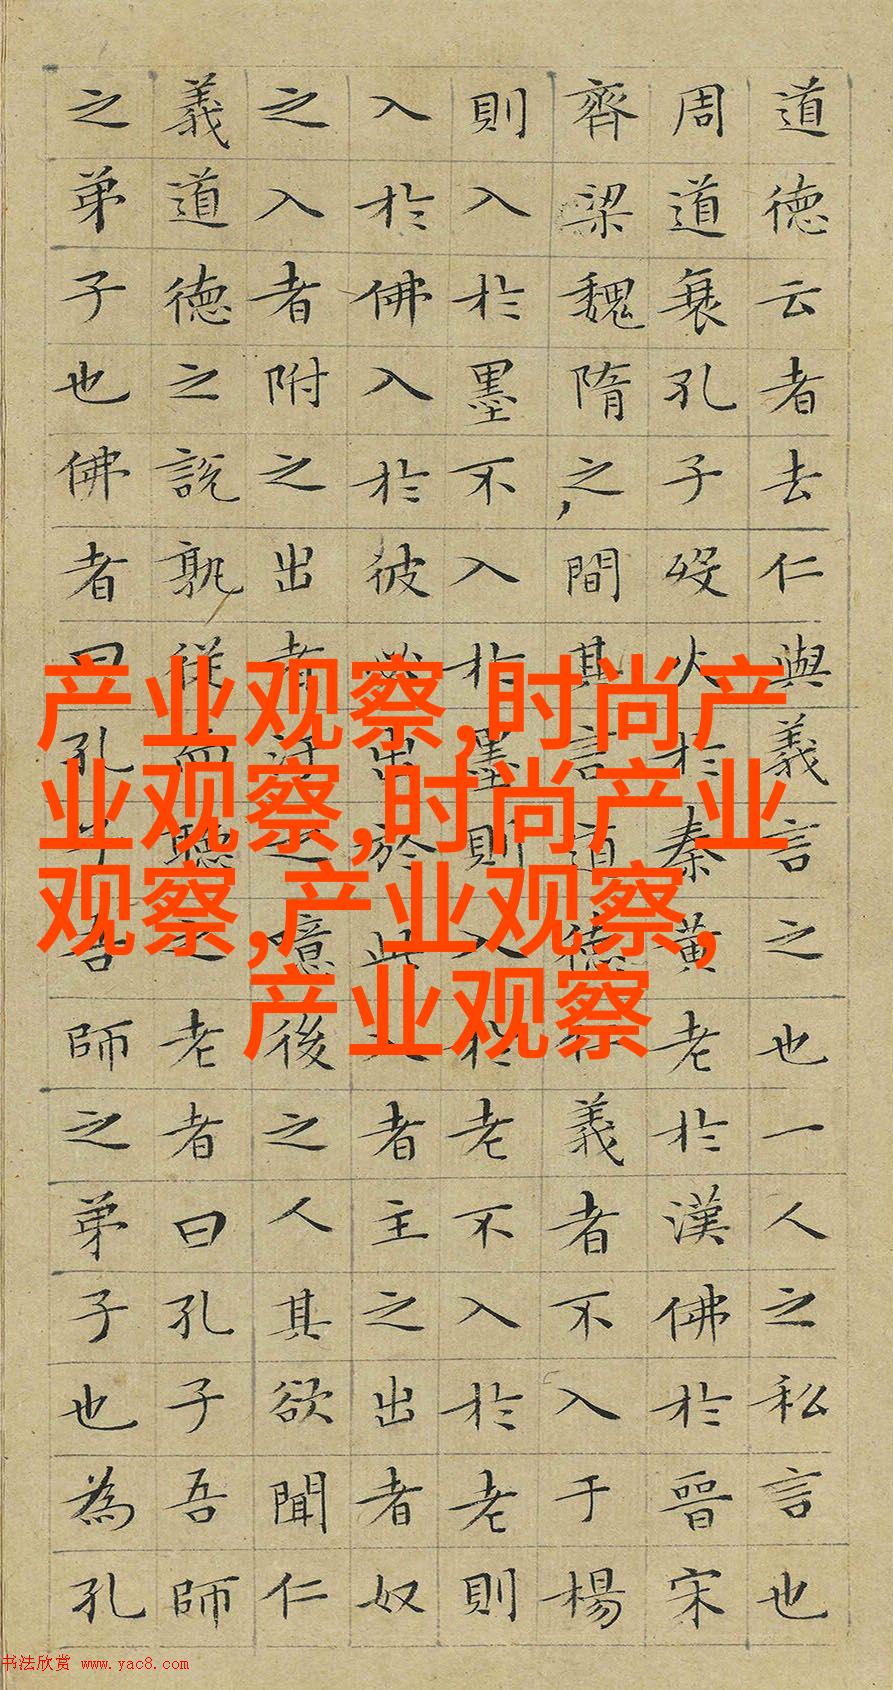 道德云者去仁與義言之也一人之私言也
周道衰孔子歿火於秦黃老於漢佛於晉宋
齊梁魏隋之間其言道德仁義者不入于楊
則入於墨不入於墨則入於老不入於老則
入於佛入於彼必出於此入者主之出者奴
之入者附之出者汙之噫後之人其欲聞仁
義道德之說孰從而聽之老者曰孔子吾師
之弟子也佛者曰孔子吾師之弟子也為孔
产业观察,时尚产
业观察,时尚产业
观察,产业观察,
产业观察
书法欣赏 www.yac8.com